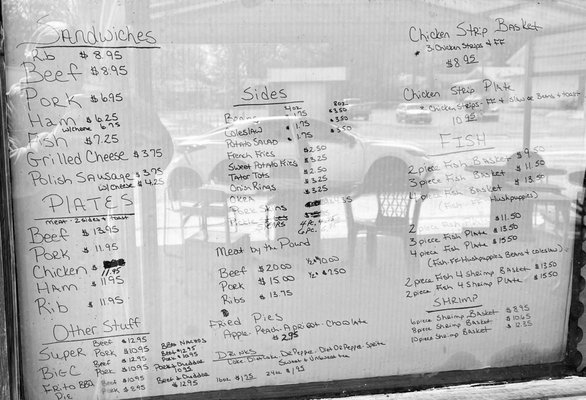 Sandwiches
Rib $8.95
Beef $8.95
Pork $6.95
Ham $6.25
w/cheese 6.75
Fish $7.25
Grilled Cheese $3.75
Polish Sausage $3.95
w/cheese $4.25
PLATES
meat - 2 sides & toast
Beef $13.95
Pork $11.95
Chicken
11.95
Ham $11.95
Rib $11.95
Other Stuff
Super Beef $12.95
Pork $10.95
Big C Beef $12.95
Pork $10.95
Frito BBQ Beef $10.95
Pie Pork $8.95
Beef Nachos
Beef $12.95
Pork $10.95
Pork & Cheddar
$10.95
Beef & Cheddar
$12.95
Sides
4oz 8oz
Beans 1.75 $3.50
Coleslaw $1.75 $3.50
Potato Salad $1.75 $3.50
French Fries $2.50
Sweet Potato Fries $3.25
Tator Tots $2.50
Onion Rings $3.25
Okra $3.25
Meat by the Pound
Beef $20.00 ½ $10.00
Pork $15.00 ½ $7.50
Ribs $13.75
Fried Pies
Apple - Peach - Apricot - Chocolate
$2.95
Drinks
Coke Dr Pepper - Diet Dr Pepper - Sprite
Sweet & Unsweet tea
16oz $1.75 24oz $1.95
Chicken Strip Basket
3 Chicken Strips & FF
$8.95
Chicken Strip Plate
Chicken Strips - FF & Slaw or Beans & toast
10.95
FISH
2 piece Fish Basket $9.50
3 piece Fish Basket $11.50
4 piece Fish Basket $13.50
(Fish FF Hushpuppies)
2 piece Fish Plate $11.50
3 piece Fish Plate $13.50
4 piece Fish Plate $15.50
(Fish FF Hushpuppies Beans & Coleslaw)
2 piece Fish 4 Shrimp Basket $13.50
2 piece Fish 4 Shrimp Plate $15.50
SHRIMP
6 piece Shrimp Basket $8.95
8 piece Shrimp Basket $10.65
10 piece Shrimp Basket $12.35